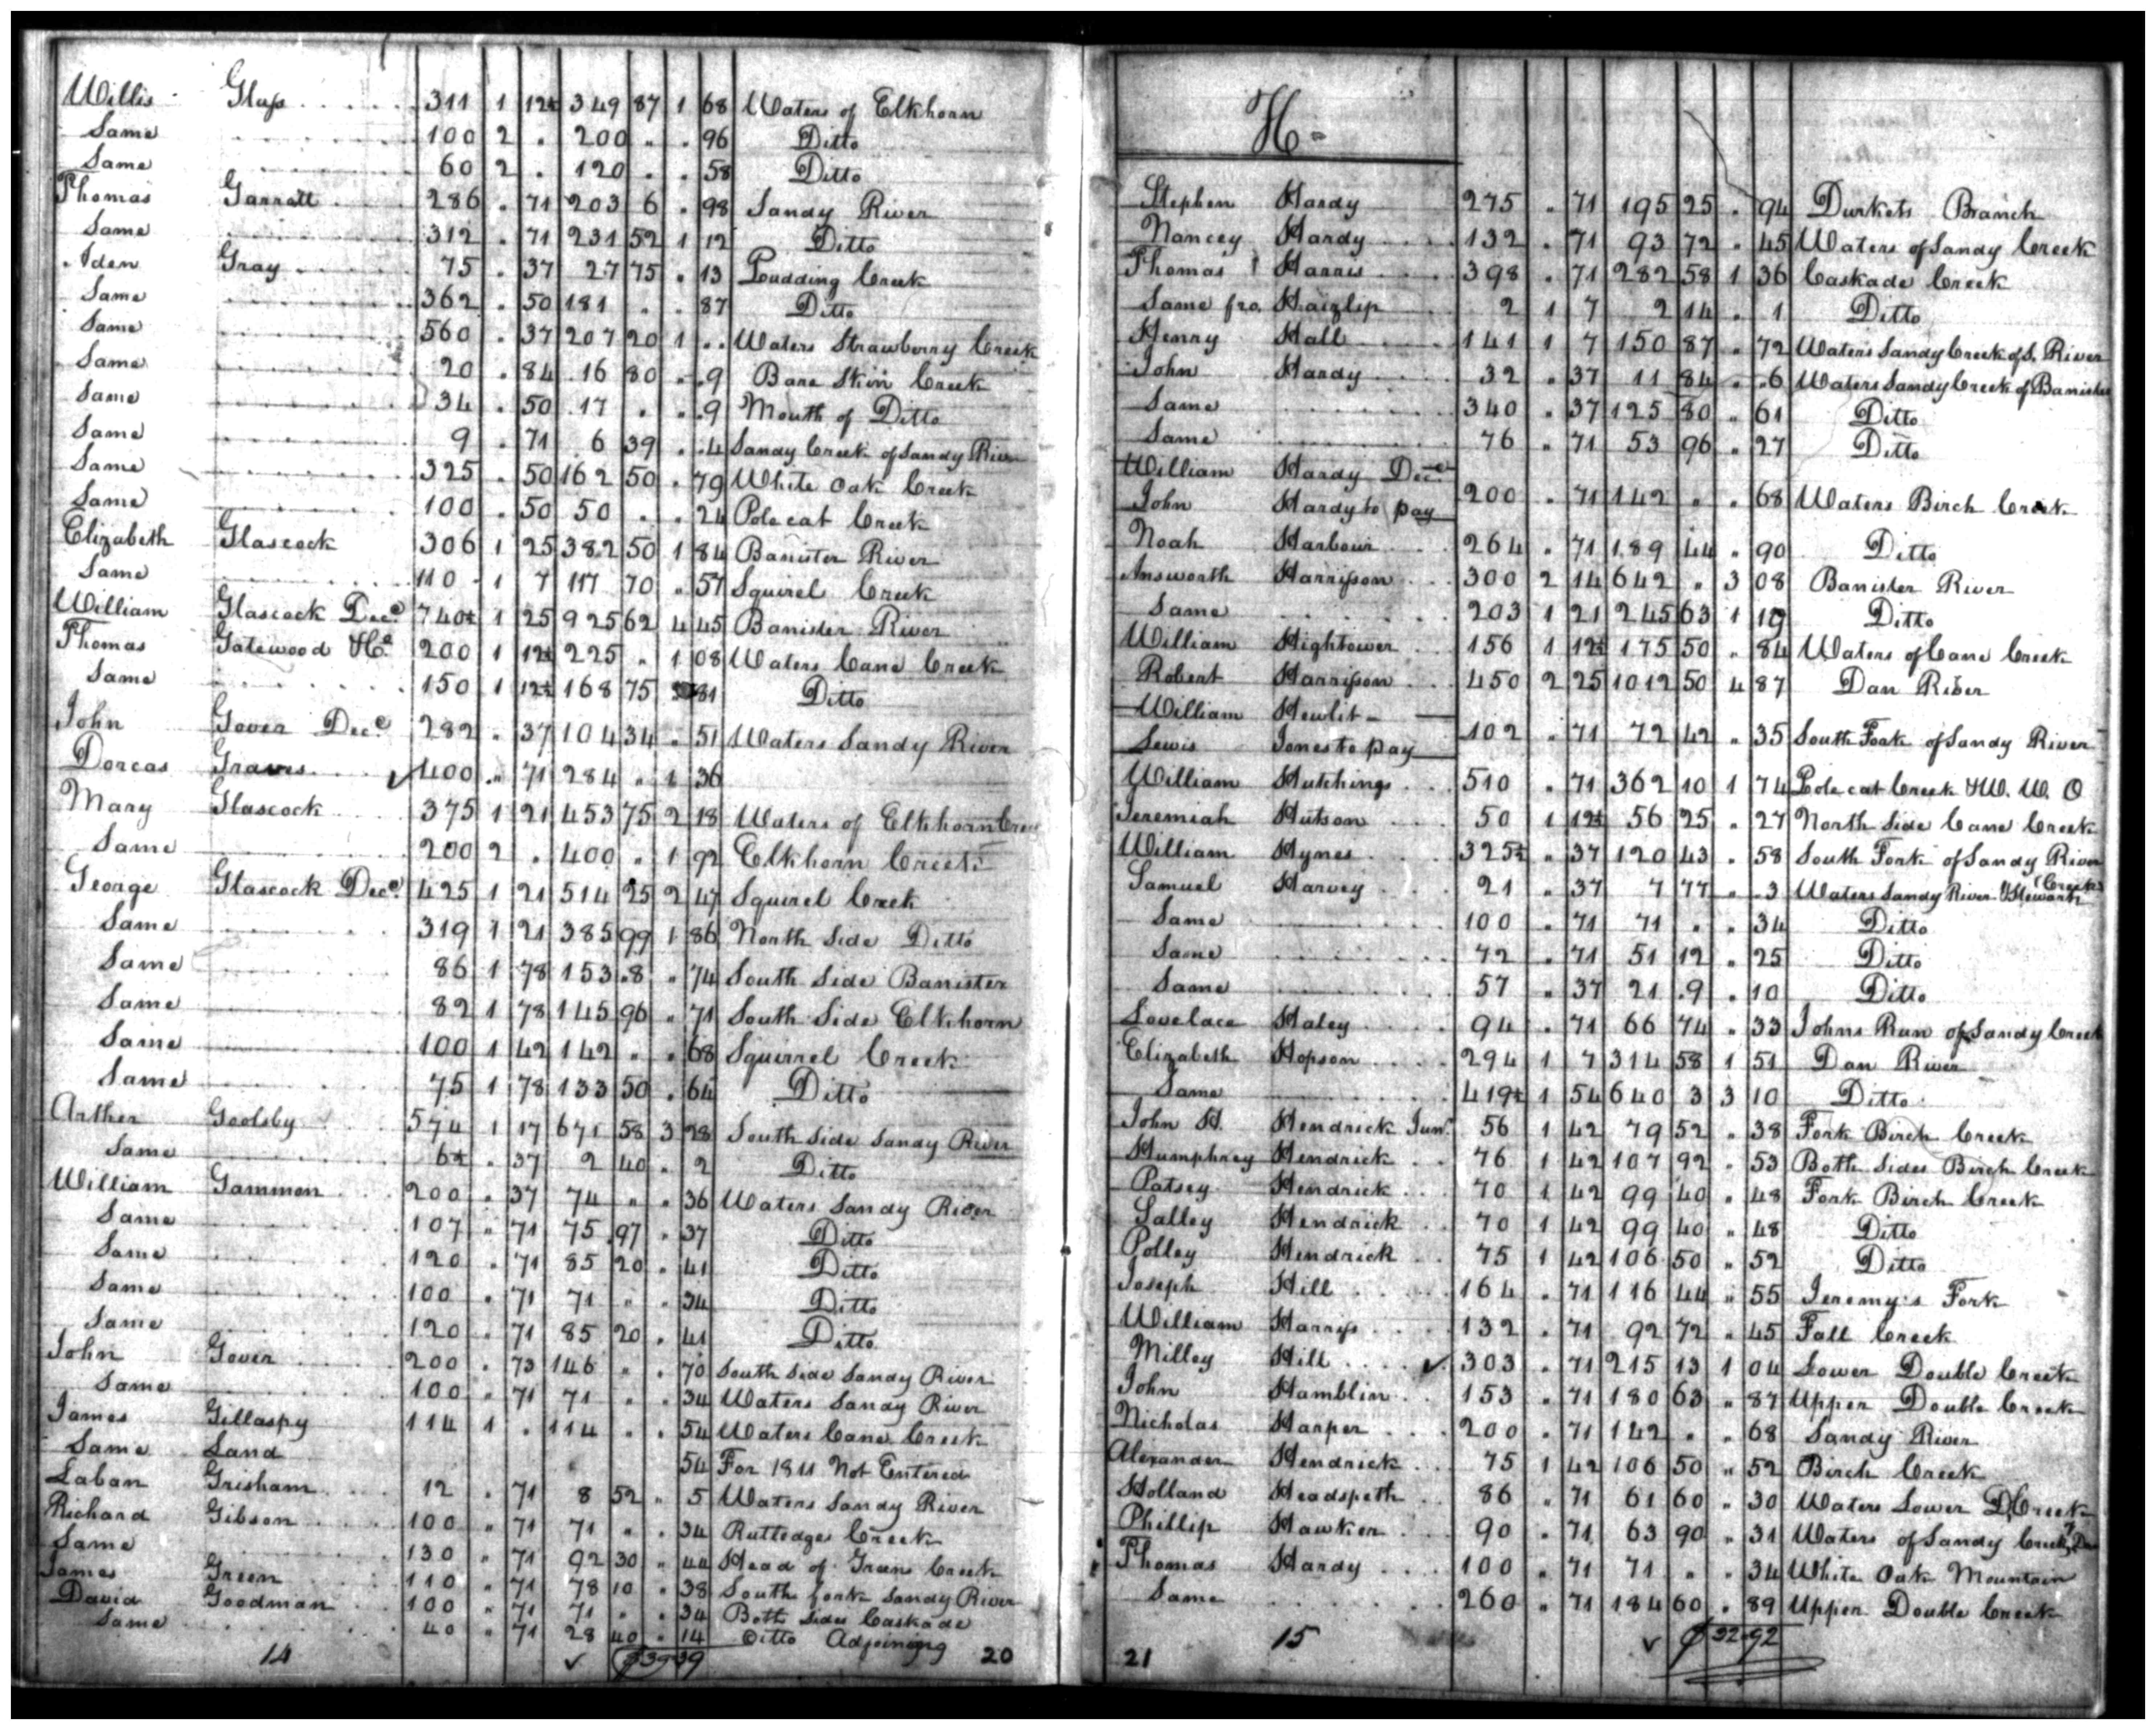 Willis Glass 311 1 12½ 349 87 1 68 Waters of Elkhorn
Same 100 2 . 200 " . 96 Ditto
Same 60 2 . 120 . . 58 Ditto
Thomas Garratt 286 . 71 203 6 . 98 Sandy River
Same 312 . 71 231 52 1 12 Ditto
Iden Gray 75 . 37 27 75 . 13 Pudding Creek
Same 362 . 50 181 . . 87 Ditto
Same 560 . 37 207 20 1 .. Waters Strawberry Creek
Same 20 . 84 16 80 . .9 Bare Skin Creek
Same 34 . 50 17 . . .9 Mouth of Ditto
Same 9 . 71 6 39 . .4 Sandy Creek of Sandy River
Same 325 . 50 162 50 . 79 White Oak Creek
Same 100 . 50 50 . . 24 Polecat Creek
Elizabeth Glascock 306 1 25 382 50 1 84 Banister River
Same 110 1 7 117 70 " 57 Squirel Creek
William Glascock Decd 740½ 1 25 925 62 4 45 Banister River
Thomas Gatewood 200 1 12½ 225 " 1 08 Waters Cane Creek
Same 150 1 12½ 168 75 81 Ditto
John Gover Decd 282 . 37 104 34 . 51 Waters Sandy River
Dorcas Graves 400 " 71 284 " 1 36
Mary Glascock 375 1 21 453 75 2 18 Waters of Elkhorn Creek
Same 200 2 . 400 " 1 92 Elkhorn Creek
George Glascock Decd 425 1 21 514 25 2 47 Squirel Creek
Same 319 1 21 385 99 1 86 North Side Ditto
Same 86 1 78 153 .8 " 74 South Side Banister
Same 82 1 78 145 96 " 71 South Side Elkhorn
Same 100 1 42 142 " . 68 Squirrel Creek
Same 75 1 78 133 50 . 64 Ditto
Arther Goolsby 574 1 17 671 58 3 28 South Side Sandy River
Same 6½ . 37 2 40 . 2 Ditto
William Gammon 200 . 37 74 " . 36 Waters Sandy River
Same 107 " 71 75 97 " 37 Ditto
Same 120 . 71 85 20 . 41 Ditto
Same 100 . 71 71 " . 34 Ditto
Same 120 . 71 85 20 . 41 Ditto
John Gover 200 . 73 146 " . 70 South Side Sandy River
Same 100 " 71 71 " . 34 Waters Sandy River
James Gillaspy 114 1 . 114 . . 54 Waters Cane Creek
Same Land 54 For 1811 Not Entered
Laban Grisham 12 . 71 8 52 " 5 Waters Sandy River
Richard Gibson 100 " 71 71 " . 34 Rutledges Creek
Same 130 " 71 92 30 " 44 Head of Green Creek
James Green 110 " 71 78 10 . 38 South fork Sandy River
David Goodman 100 " 71 71 " . 34 Both Sides Caskade
Same 40 " 71 28 40 " 14 Ditto Adjoining
14 $39.39 20
H
Stephen Hardy 275 " 71 195 25 . 94 Burkets Branch
Nancey Hardy 132 . 71 93 72 . 45 Waters of Sandy Creek
Thomas Harris 398 . 71 282 58 1 36 Caskade Creek
Same fro. Haizlip 2 1 7 2 14 . 1 Ditto
Henry Hall 141 1 7 150 87 . 72 Waters Sandy Creek of S. River
John Hardy 32 . 37 11 84 . .6 Waters Sandy Creek of Banister
Same 340 . 37 125 80 . 61 Ditto
Same 76 . 71 53 96 . 27 Ditto
William Hardy Decd
John Hardy to pay 200 . 71 142 . . 68 Waters Birch Creek
Noah Harbour 264 . 71 189 44 " 90 Ditto
Answorth Harrisson 300 2 14 642 " 3 08 Banister River
Same 203 1 21 245 63 1 19 Ditto
William Hightower 156 1 12½ 175 50 " 84 Waters of Cane Creek
Robert Harrisson 450 2 25 1012 50 4 87 Dan River
William Hewlit
Lewis Jones to pay 102 . 71 72 42 " 35 South Fork of Sandy River
William Hutchings 510 . 71 362 10 1 74 Polecat Creek & W. W. O
Jeremiah Hutson 50 1 12½ 56 25 . 27 North Side Cane Creek
William Hynes 325½ " 37 120 43 . 58 South Fork of Sandy River
Samuel Harvey 21 . 37 7 77 . .3 Waters Sandy River Stewarts (Creek)
Same 100 . 71 71 . . 34 Ditto
Same 72 . 71 51 12 . 25 Ditto
Same 57 " 37 21 .9 . 10 Ditto
Lovelace Haley 94 . 71 66 74 . 33 Johns Run of Sandy Creek
Elizabeth Hopson 294 1 7 314 58 1 51 Dan River
Same 419½ 1 54 640 3 3 10 Ditto
John H. Hendrick Junr 56 1 42 79 52 . 38 Fork Birch Creek
Humphrey Hendrick 76 1 42 107 92 . 53 Both Sides Birch Creek
Patsey Hendrick 70 1 42 99 40 . 48 Fork Birch Creek
Salley Hendrick 70 1 42 99 40 " 48 Ditto
Polley Hendrick 75 1 42 106 50 " 52 Ditto
Joseph Hill 164 . 71 116 44 " 55 Jeremy's Fork
William Harriss 132 . 71 92 72 " 45 Fall Creek
Milley Hill 303 . 71 215 13 1 04 Lower Double Creek
John Hamblin 153 . 71 180 63 " 87 Upper Double Creek
Nicholas Harper 200 . 71 142 . . 68 Sandy River
Alexander Hendrick 75 1 42 106 50 " 52 Birch Creek
Holland Headspeth 86 " 71 61 60 " 30 Waters Lower D. Creek
Phillip Hawker 90 . 71 63 90 . 31 Waters of Sandy Creek
Thomas Hardy 100 " 71 71 . . 34 White Oak Mountain
Same 260 " 71 184 60 . 89 Upper Double Creek
21 15 $32.92